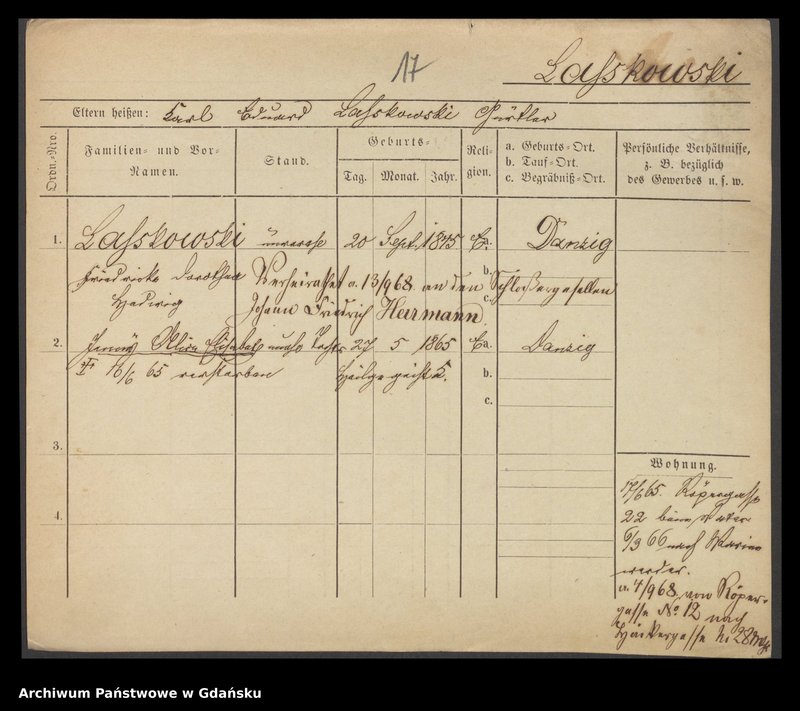 17
Lasskowski
Eltern heißen: Karl Eduard Lasskowski Gürtler
Ordn.-Nro.
Familien- und Vor-Namen.
Stand.
Geburts-
Tag. Monat. Jahr.
Reli-gion.
a. Geburts-Ort.
b. Tauf-Ort.
c. Begräbniß-Ort.
Persönliche Verhältnisse,
z. B. bezüglich
des Gewerbes u. s. w.
1. Lasskowski 20 Sept. 1845 E. a. Danzig
Friedricke Dorothea Verheirathet a. 13/968 an den Schlossergesellen b.
Hedwig Johann Friedrich Herrmann c.
2. Jenny Elisabeth 27 5 1865 E a. Danzig
16/6 65 verstorben Heilge geist K. b.
c.
3.
4.
Wohnung.
17/6 65. Röpergasse
22 beim Vater
6/3 66 nach Marien
werder.
a. 4/968 von Röper-
gasse No. 12 nach
Häkergasse N. 28
Archiwum Państwowe w Gdańsku